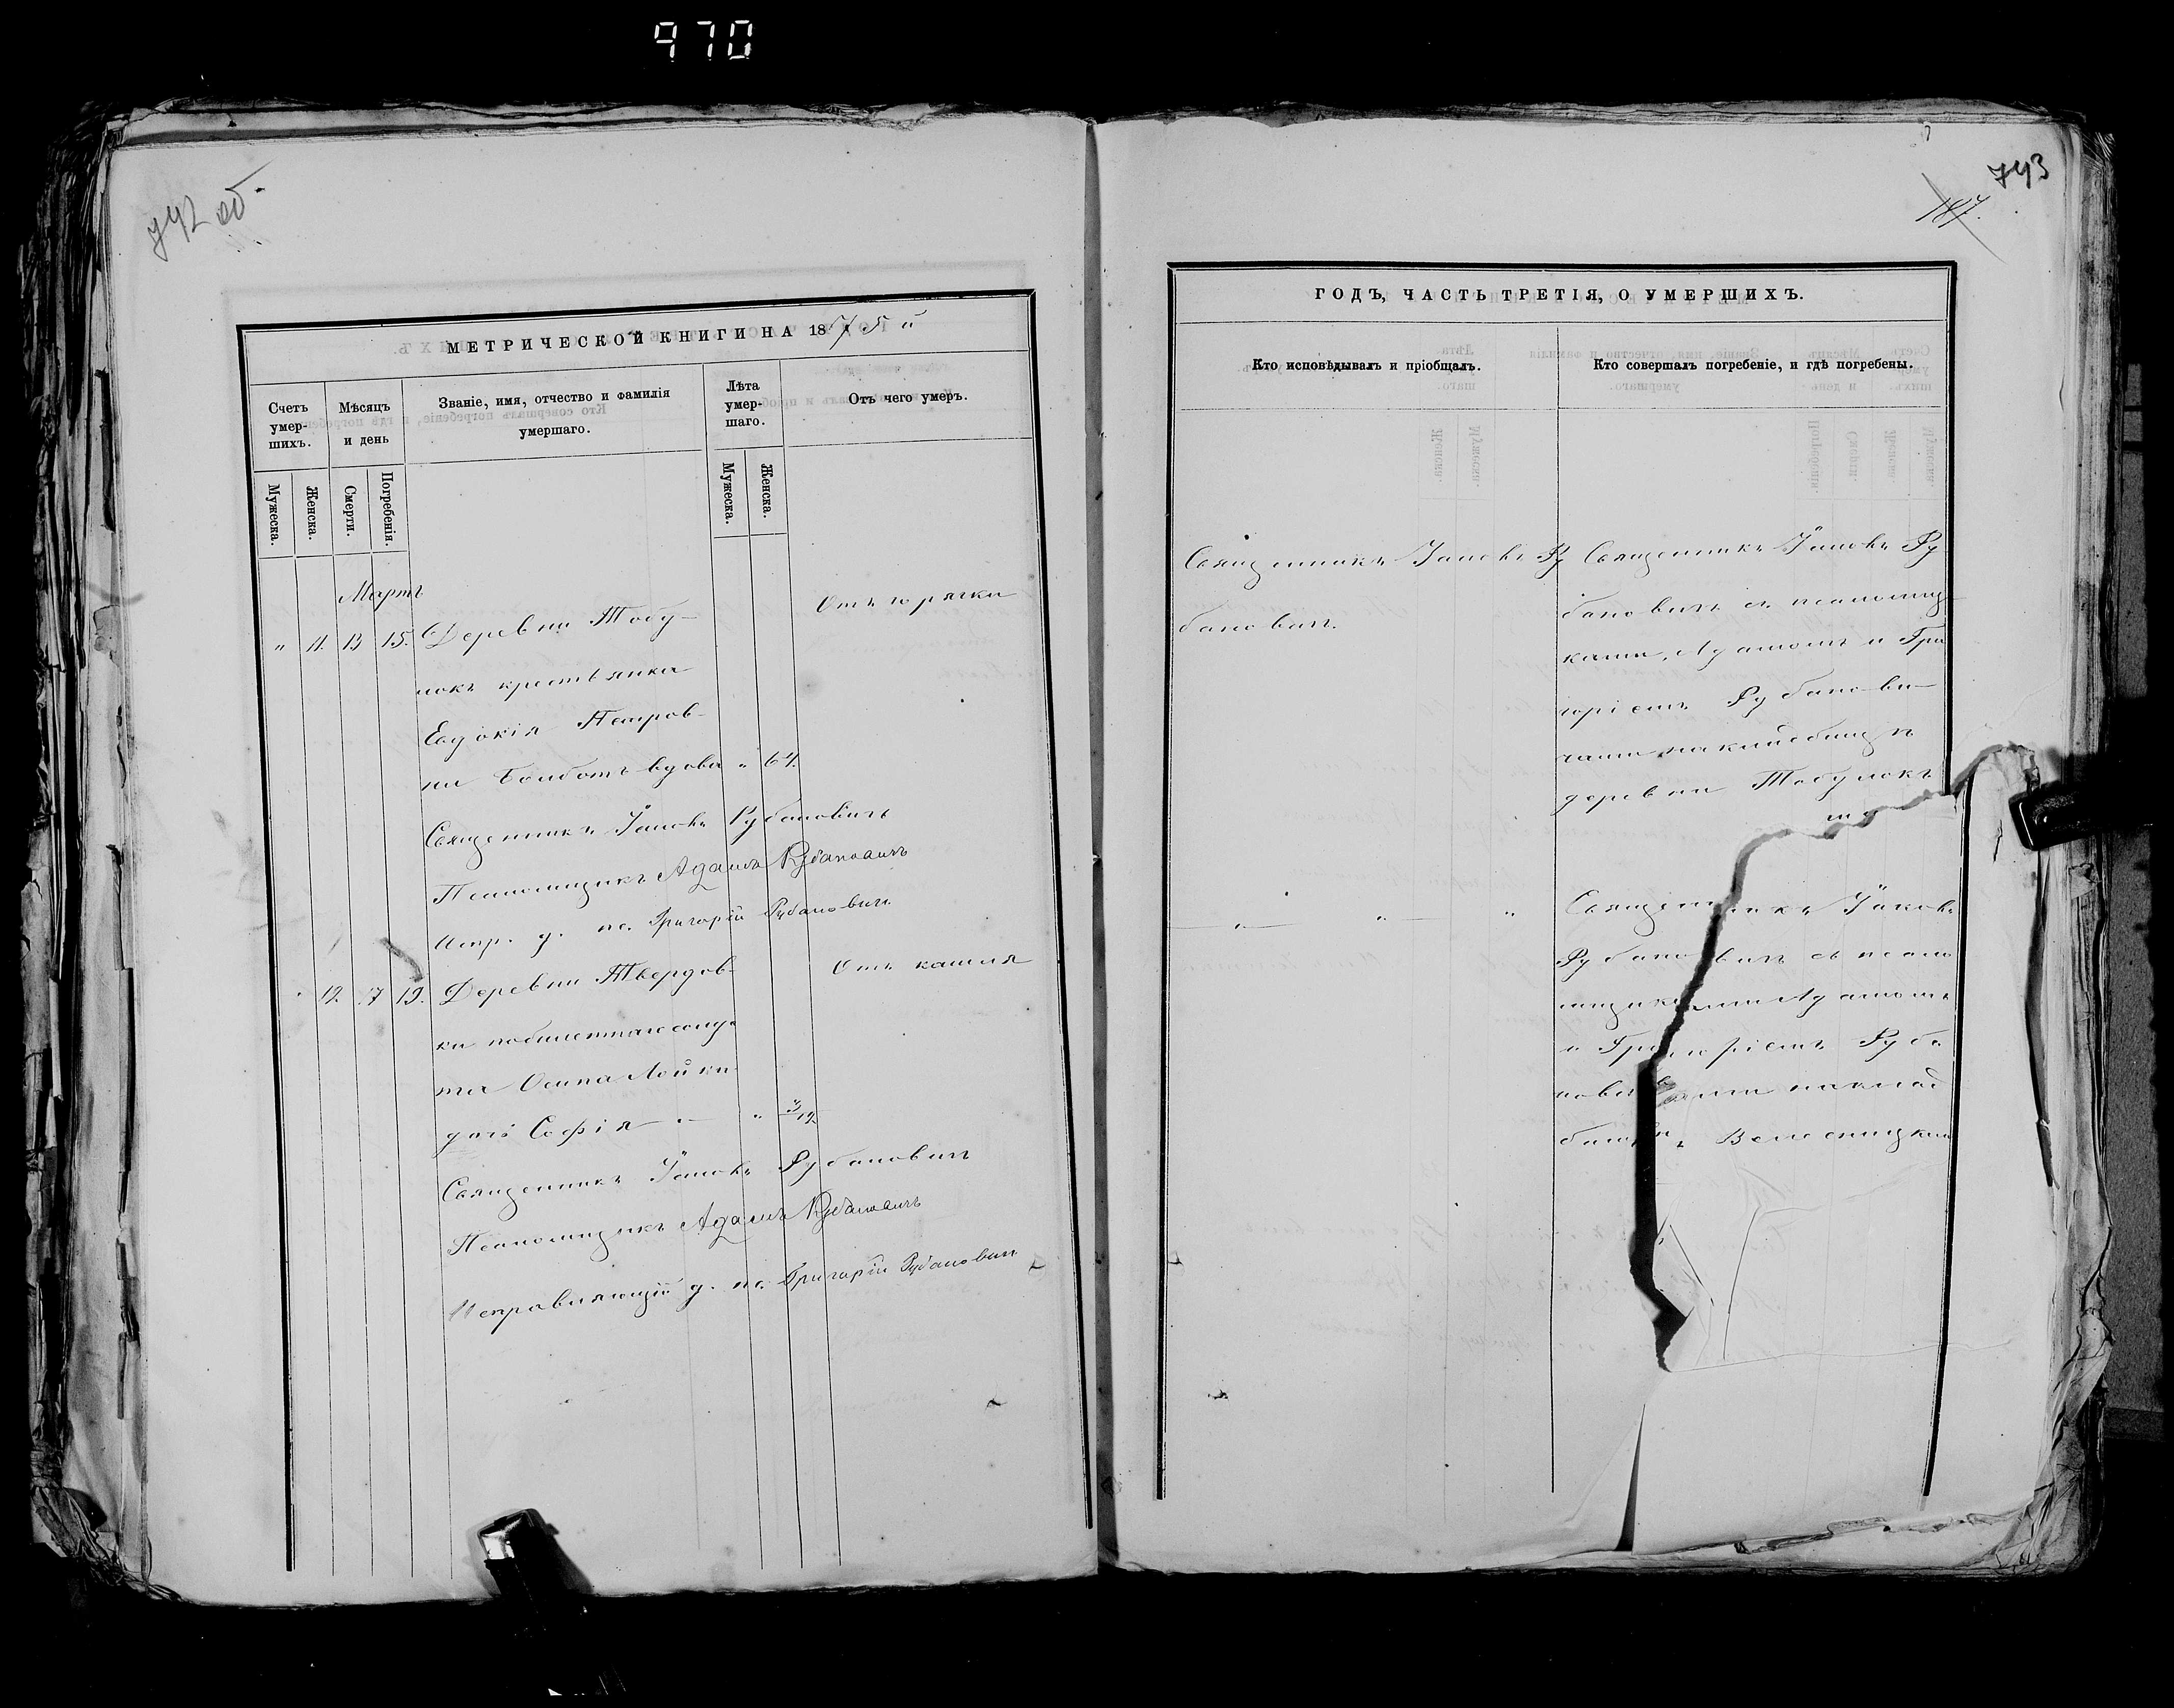 970
742 об.
МЕТРИЧЕСКОЙ КНИГИ НА 1875й
Счетъ умер-шихъ.
Мѣсяцъ и день
Званіе, имя, отчество и фамилія умершаго.
Лѣта умер-шаго.
Отъ чего умеръ.
Мужеска.
Женска.
Смерти.
Погребенія.
Мужеска.
Женска.
Мартъ
" 11. 13 15. Деревни Тобу-
локъ крестьянка
Евдокія Петров-
на вдова " 64.
Отъ горячки
Священникъ Іаковъ Рубановичъ
Псаломщикъ Адамъ Рубановичъ
Испр. д. пс. Григорій Рубановичъ
12. 17 19. Деревни Твердов-
ки
та Осипа
дочь Софія " 3/12
Отъ кашля
Священникъ Іаковъ Рубановичъ
Псаломщикъ Адамъ Рубановичъ
Исправляющій д. пс. Григорій Рубановичъ
743
187.
ГОДЪ, ЧАСТЬ ТРЕТІЯ, О УМЕРШИХЪ.
Кто исповѣдывалъ и пріобщалъ.
Кто совершалъ погребеніе, и гдѣ погребены.
Священникъ Іаковъ Ру
бановичъ.
Священникъ Іаковъ Ру
бановичъ съ псаломщи
ками, Адамомъ и Гри
горіемъ Рубанови
чами на кладбищѣ
деревни Тобулокъ
Священникъ Іаковъ
Рубановичъ съ псало
мщиками Адамомъ
и Григоріемъ Руба
новичами на клад
бищѣ